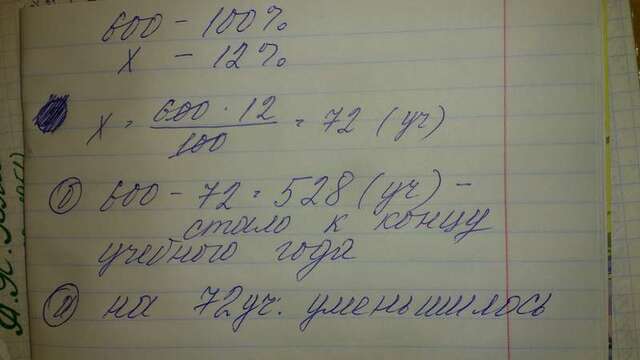 600 - 100%
x - 12%
x = 600 · 12 / 100 = 72 (уч)
б 600 - 72 = 528 (уч) -
стало к концу
учебного года
а на 72 уч. уменьшилось